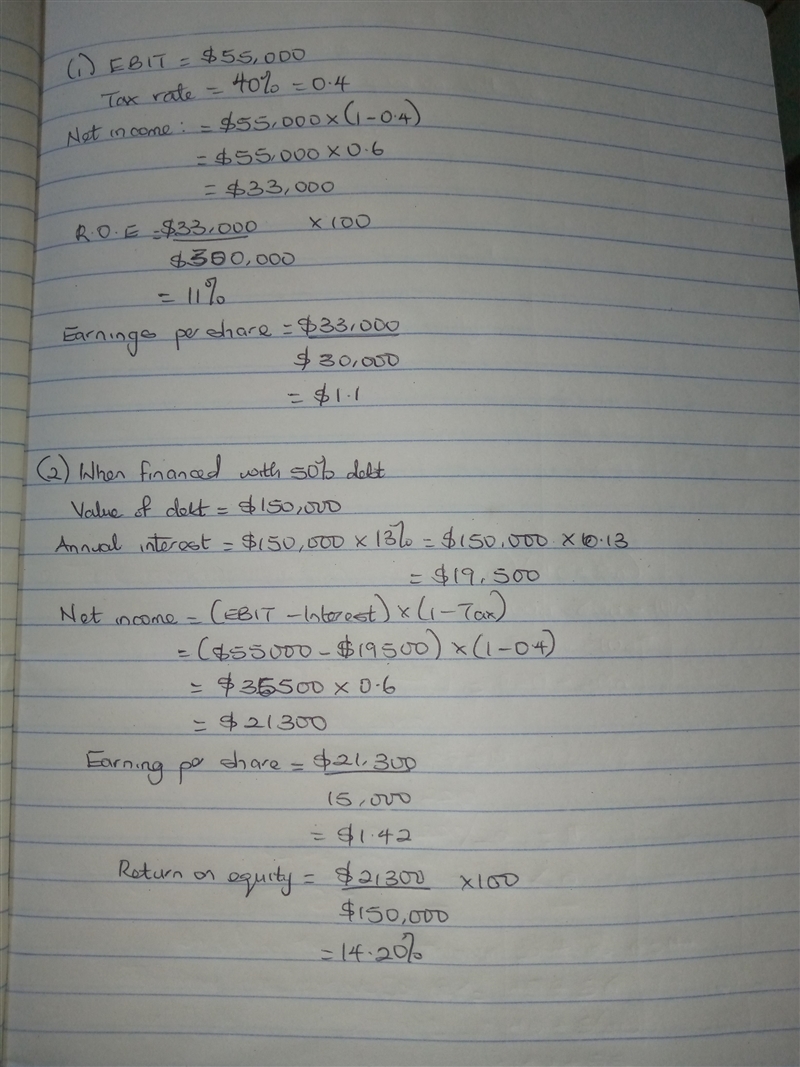 (1) EBIT = $55,000
Tax rate = 40% = 0.4
Net income: = $55,000 × (1-0.4)
= $55,000 × 0.6
= $33,000
R.O.E = $33,000 × 100
$300,000
= 11%
Earnings per share = $33,000
$30,000
= $1.1
(2) When financed with 50% debt
Value of debt = $150,000
Annual interest = $150,000 × 13% = $150,000 × 0.13
= $19,500
Net income = (EBIT - Interest) × (1 - Tax)
= ($55000 - $19500) × (1-0.4)
= $35500 × 0.6
= $21300
Earning per share = $21,300
15,000
= $1.42
Return on equity = $21300 ×100
$150,000
= 14.20%